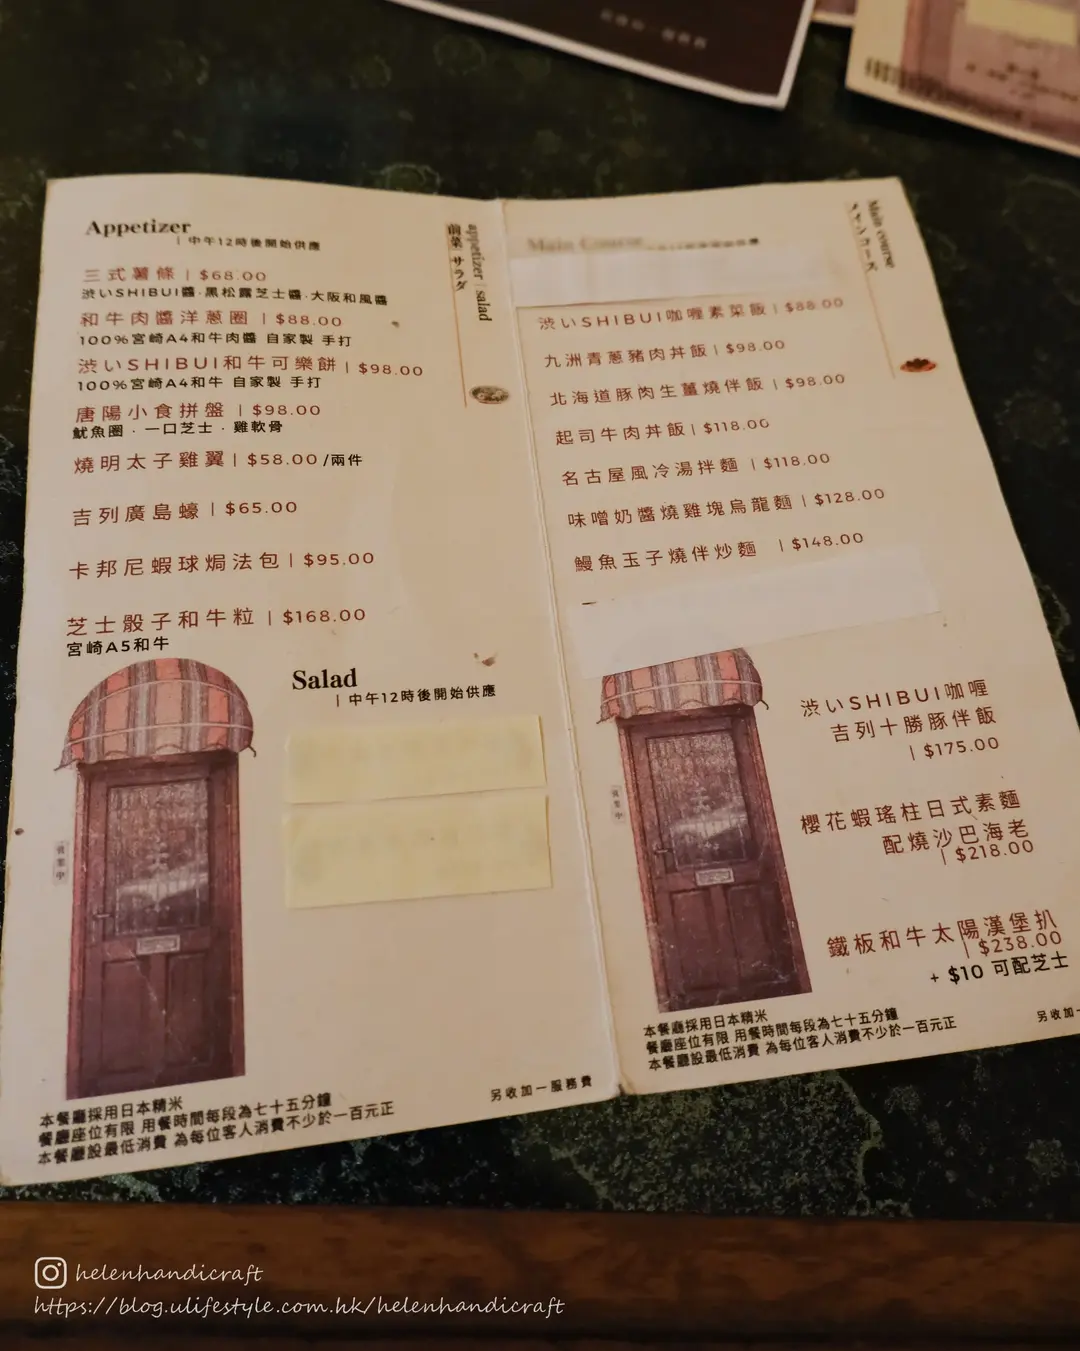 Appetizer
| 中午12時後開始供應
三式薯條 | $68.00
渋いSHIBUI醬·黑松露芝士醬·大阪和風醬
和牛肉醬洋蔥圈 | $88.00
100%宮崎A4和牛肉醬 自家製 手打
渋いSHIBUI和牛可樂餅 | $98.00
100%宮崎A4和牛 自家製 手打
唐陽小食拼盤 | $98.00
魷魚圈 · 一口芝士 · 雞軟骨
燒明太子雞翼 | $58.00 /兩件
吉列廣島蠔 | $65.00
卡邦尼蝦球焗法包 | $95.00
芝士骰子和牛粒 | $168.00
宮崎A5和牛
appetizer | salad
前菜 | サラダ
Salad
| 中午12時後開始供應
營業中
另收加一服務費
本餐廳採用日本精米
餐廳座位有限 用餐時間每段為七十五分鐘
本餐廳設最低消費 為每位客人消費不少於一百元正
Main Course
Main course
メインコース
渋いSHIBUI咖喱素菜飯 | $88.00
九洲青蔥豬肉丼飯 | $98.00
北海道豚肉生薑燒伴飯 | $98.00
起司牛肉丼飯 | $118.00
名古屋風冷湯拌麵 | $118.00
味噌奶醬燒雞塊烏龍麵 | $128.00
鰻魚玉子燒伴炒麵 | $148.00
渋いSHIBUI咖喱
吉列十勝豚伴飯
| $175.00
櫻花蝦瑤柱日式素麵
配燒沙巴海老
| $218.00
鐵板和牛太陽漢堡扒
| $238.00
+ $10 可配芝士
營業中
本餐廳採用日本精米
餐廳座位有限 用餐時間每段為七十五分鐘
本餐廳設最低消費 為每位客人消費不少於一百元正
另收加一
helenhandicraft
https://blog.ulifestyle.com.hk/helenhandicraft